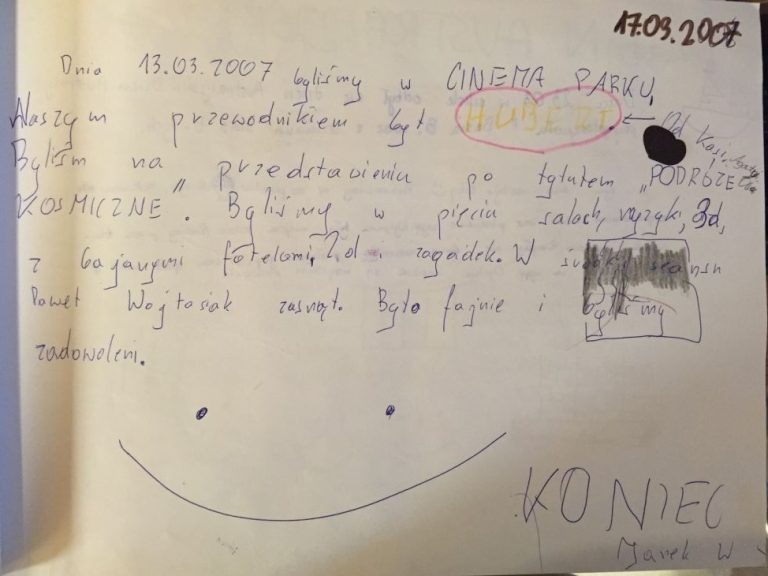 17.03.2007
Dnia 13.03.2007 byliśmy w CINEMA PARKU,
Naszym przewodnikiem był HUBERT. ← Od Kasi,
Byliśm na "przedstawieniu po tytułem „PODRÓŻE
KOSMICZNE". Byliśmy w pięciu salach, muzyki, 3d,
z bajanymi fotelami, 2d i zagadek. W środku seansu
Paweł Wojtasiak zasnął. Było fajnie i byliśmy
zadowoleni.
KONIEC
Janek W